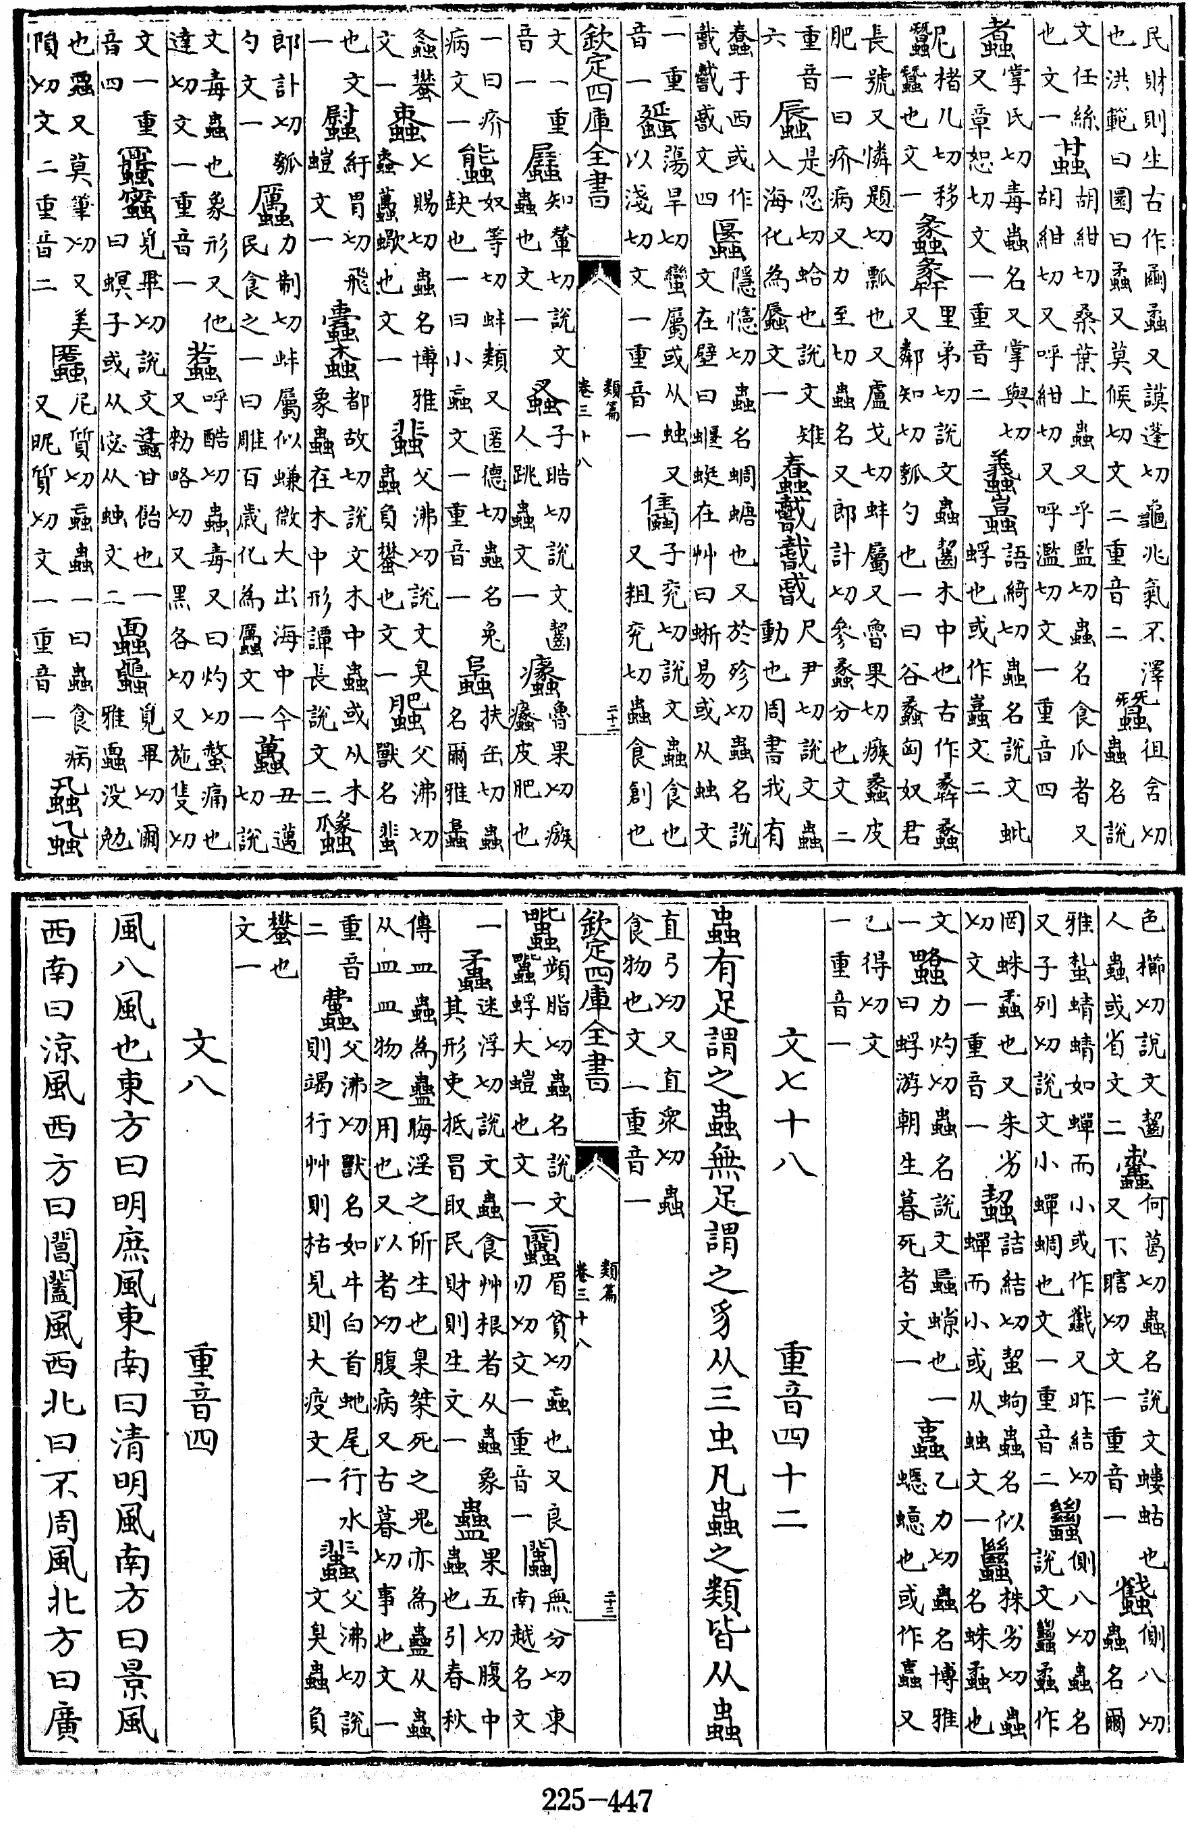 民財則生古作蟊又謨蓬切龜兆氣不澤徂含切
也洪範曰圛曰蟊又莫候切文二重音二蠶蟲名說
文任絲胡紺切桑葉上蟲又乎監切蟲名食瓜者又
也文一胡紺切又呼紺切又呼濫切文一重音四
掌氏切毒蟲名又掌與切語綺切蟲名說文蚍
又章恕切文一重音二蜉也或作文二
尼楮几切移里弟切說文蟲齧木中也古作蟊
蠶也文一蠡又鄰知切瓠勺也一曰谷蠡匈奴君
長號又憐題切瓢也又盧戈切蚌屬又魯果切瘯蠡皮
肥一曰疥病又力至切蟲名又郎計切參蠡分也文二
重音是忍切蛤也說文雉尺尹切說文蟲
六入海化為蜃文一蠢動也周書我有
蠢于西或作隱憶切蟲名蜩蟧也又於殄切蟲名說
文四文在壁曰蝘蜓在艸曰蜥易或从䖵文
一重蕩旱切蠻屬或从䖵又子兖切說文蟲食也
音一以淺切文一重音一又粗兖切蟲食創也
欽定四庫全書
類篇
卷三十八
二十二
文一重知輦切說文子晧切說文齧魯果切瘯
音一蟲也文一人跳蟲文一蠡皮肥也
一曰疥奴等切蚌類又匿德切蟲名兔扶缶切蟲
病文一缺也一曰小䖵文一重音一名爾雅
螽蠜七賜切蟲名博雅父沸切說文臭父沸切
文一蠆蠍也文一蟲負蠜也文一獸名蜚
也文紆胃切飛都故切說文木中蟲或从木
一螘文一蠹象蟲在木中形譚長說文二
郎計切瓠力制切蚌屬似螊微大出海中今丑邁
勺文一民食之一曰雕百歲化為文一切說
文毒蟲也象形又他呼酷切蟲毒又曰灼切螫痛也
達切文一重音一又勑略切又黑各切又施隻切
文一重覓畢切說文甘飴也一覓畢切爾
音四曰螟子或从宓从䖵文二雅蠠没勉
也又莫筆切又美尼質切䖵蟲一曰蟲食病
隕切文二重音二又昵質切文一重音一
色櫛切說文齧何葛切蟲名說文螻蛄也側八切
人蟲或省文二又下瞎切文一重音一蟲名爾
雅蚻蜻蜻如蟬而小或作又昨結切側八切蟲名
又子列切說文小蟬蜩也文一重音二說文作
罔蛛蟊也又朱劣詰結切蛪蚼蟲名似株劣切蟲
切文一重音一蟬而小或从䖵文一名蛛蟊也
文力灼切蟲名說文螶蟓也一乙力切蟲名博雅
一曰蜉游朝生暮死者文一也或作又
乙得切文
一重音一
文七十八　重音四十二
蟲有足謂之蟲無足謂之豸从三虫凡蟲之類皆从蟲
直弓切又直衆切蟲
食物也文一重音一
欽定四庫全書
類篇
卷三十八
二十三
頻脂切蟲名說文眉貧切䖵也又良無分切東
蜉大螘也文一刃切文一重音一南越名文
一迷浮切說文蟲食艸根者从蟲象果五切腹中
蟊其形吏抵冒取民財則生文一蠱蟲也引春秋
傳皿蟲為蠱晦淫之所生也臬桀死之鬼亦為蠱从蟲
从皿皿物之用也又以者切腹病又古暮切事也文一
重音父沸切獸名如牛白首虵尾行水父沸切說
二則竭行艸則枯見則大疫文一文臭蟲負
蠜也
文一
文八　重音四
風八風也東方曰明庶風東南曰清明風南方曰景風
西南曰涼風西方曰閶闔風西北曰不周風北方曰廣
225-447